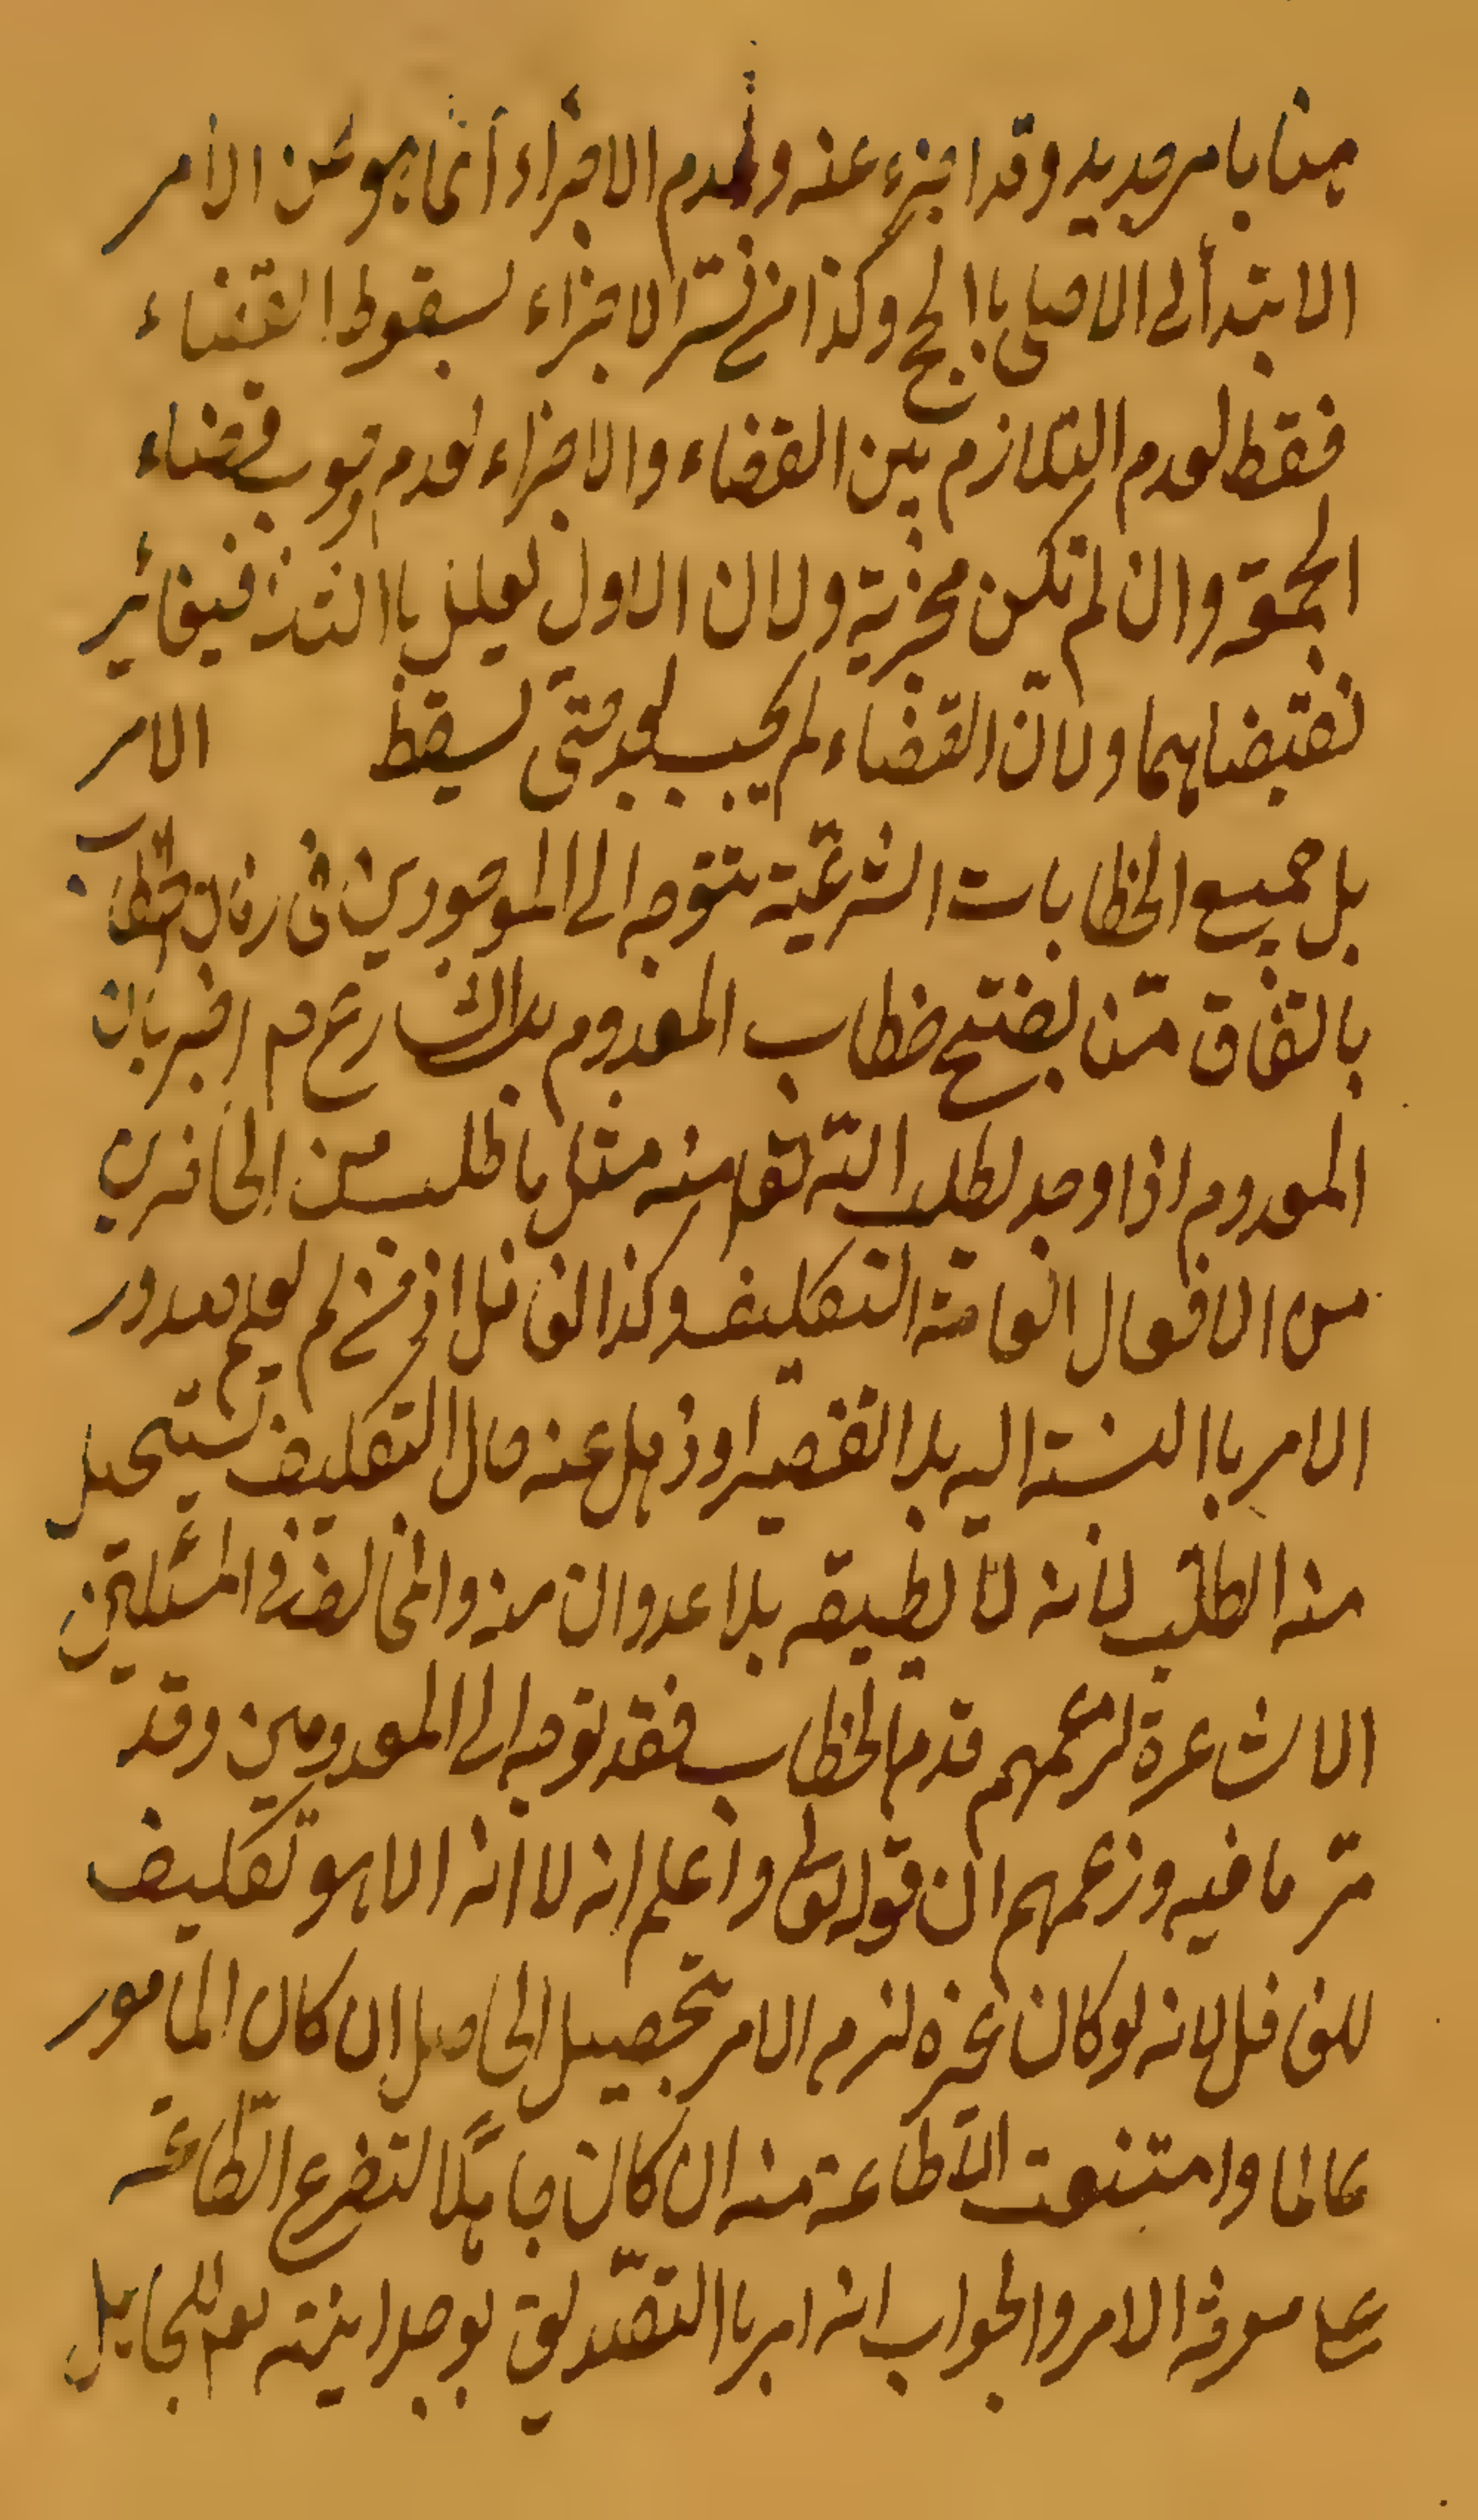 هنا بامر جديد وقد اجزء عنه وعدم الاجزاء انما هو عن الامر
الابتدائي الاصلي باالحج وكذا من فسّر الاجزاء لسقوط القضاء
فقط لعدم التلازم بين القضاء والاجزاء لعدم وجوب قضاء
الجمعة وان لم تكن مجزية ولان الاول لعلل باالثانی فيغاير
نقتضاهما ولانّ القضاء لم يجب بعد حتّى يسقط الامر
بل جميع الخطابات الشرعيّة تتوجه الى الموجودين في زمان الخطاب
بالتفاق منّا لضتح خطاب المعدوم بل الشارع م اخبر بان
المعدوم اذا وجد لطلب الله تعا منه مثل ما طلب من الحاضرين
من الافعال العامّة التكليف وكذا الغافل اذ من لم يعلم بصدور
الامر باالنسبة اليه بلا تقصير او ذهل عنه حال التكليف يستحيل
منه الطلب لانه لا يطيقه بلا عدوان منه والمخالف في المسئلتين
الاشاعرة لزعمهم قدم الخطاب فقد توجه الى المعدومين وقد
مرّ ما فيه وزعمهم ان قوله تعالى واعلم انه لا اله الا هو تكليف
للغافل لانه لو كان غيره لزم الامر بتحصيل الحاصل ان كان المامور
عالما وامتنعت الاطاعة منه ان كان جاهلا لتفرع الطاعة
على معرفة الامر والجواب انه امر باالتصديق بوحدانيته تعم للجاهل